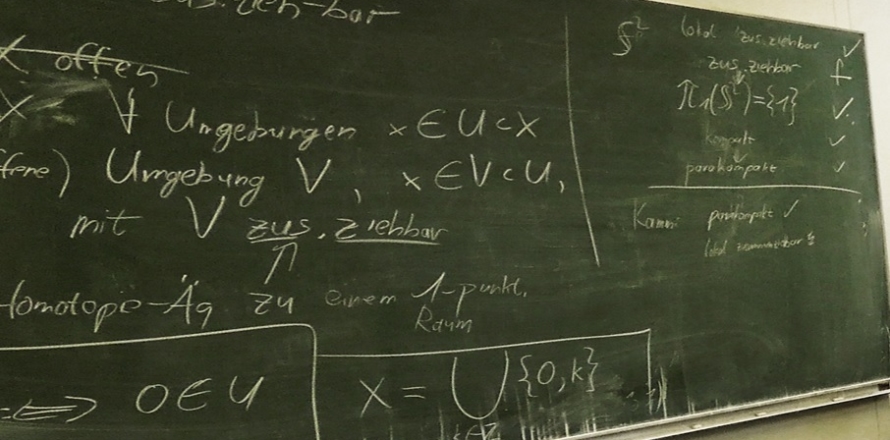 zus.zieh-bar
X offen
X ∀ Umgebungen x ∈ U ⊂ X
offene) Umgebung V, x ∈ V ⊂ U,
mit V zus.ziehbar
Homotopie-Äq zu einem 1-punkt.
Raum
⟺ 0 ∈ U
X = ⋃ {0,k}
k∈Z
S² lokal zus.ziehbar ✓
zus.ziehbar f
π₁(S²)={1} ✓
kompakt ✓
parakompakt ✓
Kamm: parakompakt ✓
lokal